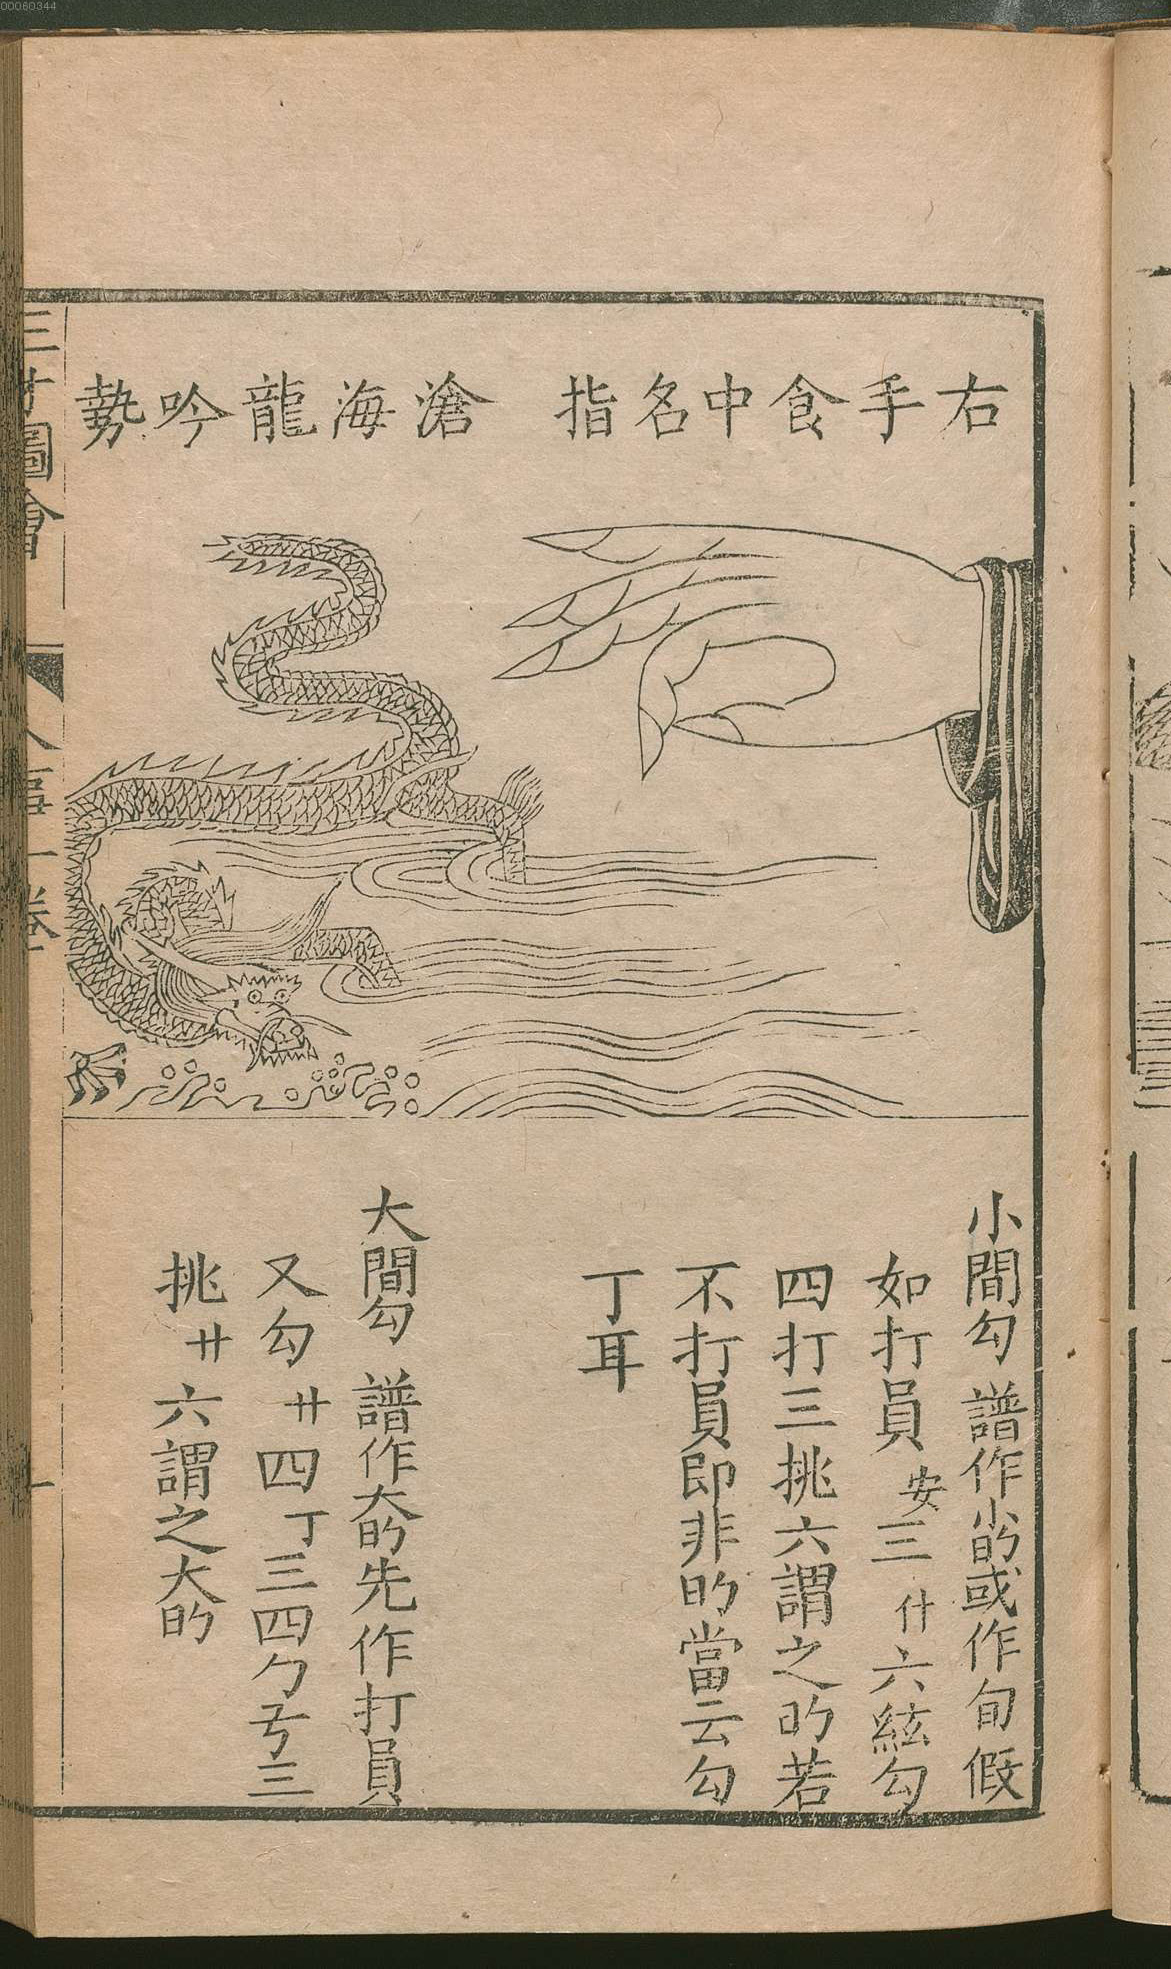 00060344
右手食中名指
滄海龍吟勢
小間勾 譜作㫑或作旬假
如打員安三什六絃勾
四打三挑六謂之㫑若
不打員即非㫑當云勾
丁耳
大間勾 譜作先作打員
又勾卄四丁三四勹丂三
挑卄六謂之大㫑
三才圖會
人事一卷